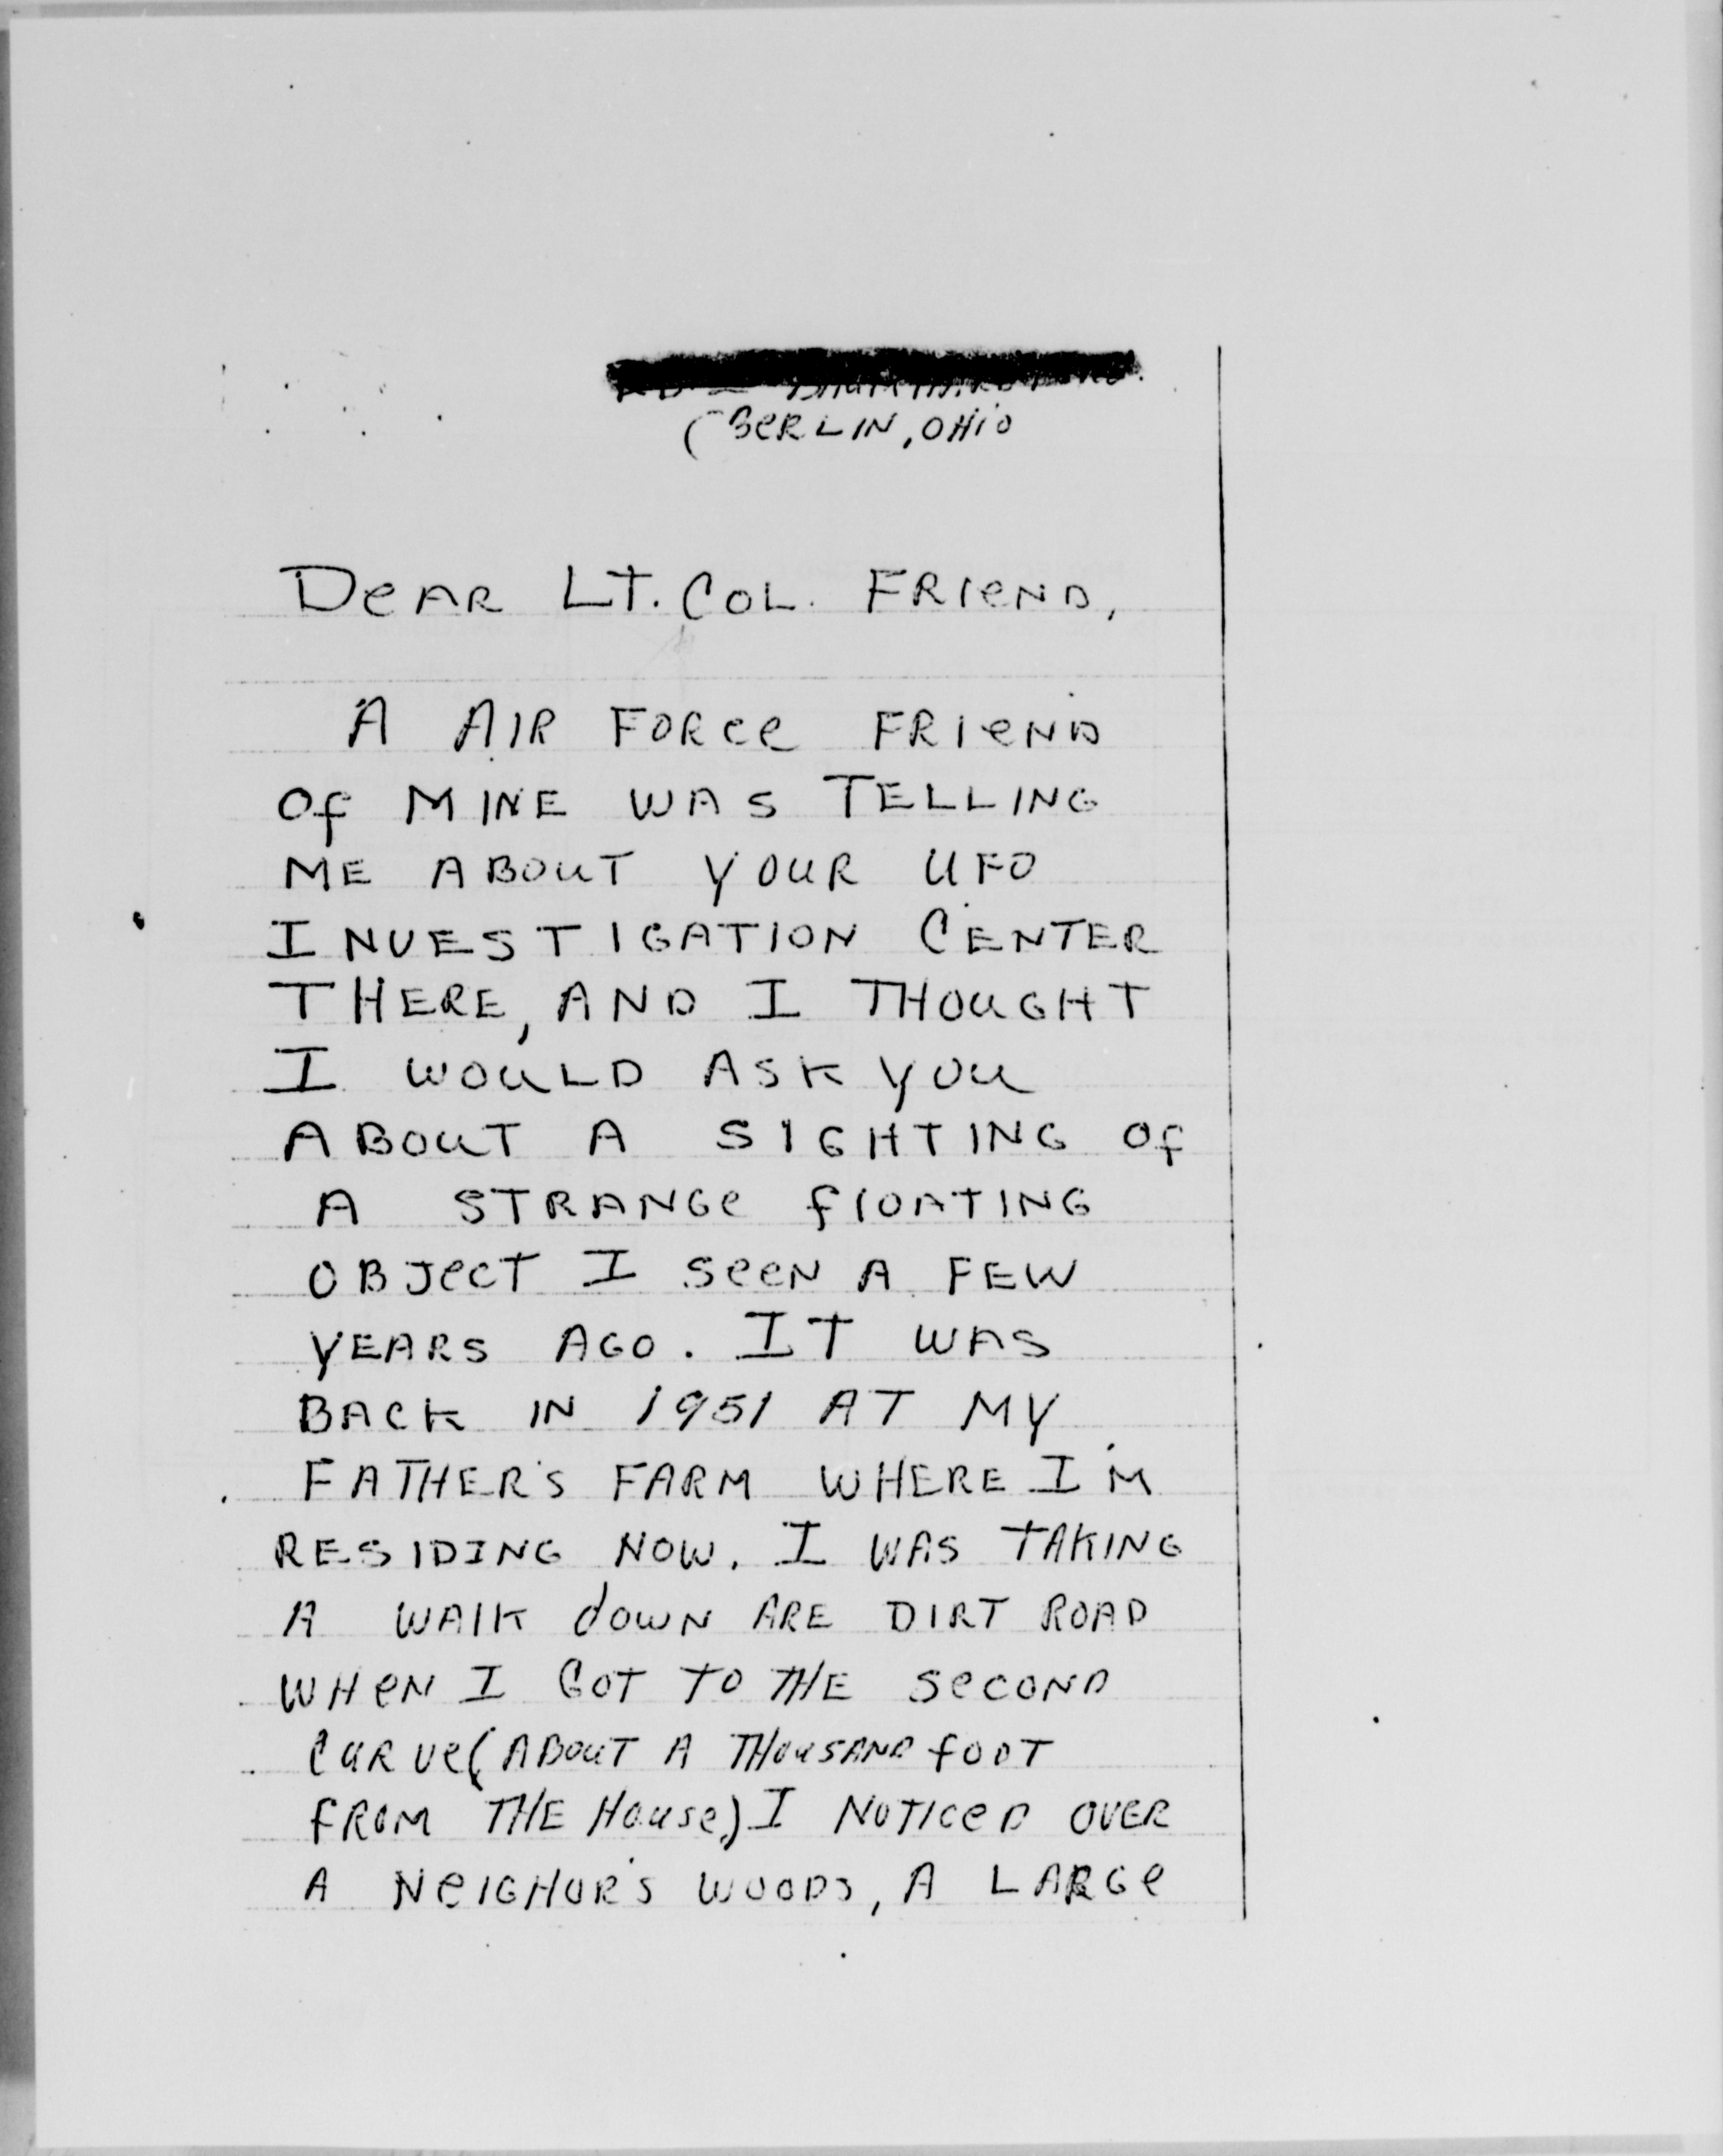 (BERLIN, OHIO
DEAR LT. COL. FRIEND,
A AIR FORCE FRIEND
OF MINE WAS TELLING
ME ABOUT YOUR UFO
INVESTIGATION CENTER
THERE, AND I THOUGHT
I WOULD ASK YOU
ABOUT A SIGHTING OF
A STRANGE FLOATING
OBJECT I SEEN A FEW
YEARS AGO. IT WAS
BACK IN 1951 AT MY
FATHER'S FARM WHERE I'M
RESIDING NOW. I WAS TAKING
A WALK DOWN ARE DIRT ROAD
WHEN I GOT TO THE SECOND
CURVE (ABOUT A THOUSAND FOOT
FROM THE HOUSE) I NOTICED OVER
A NEIGHOR'S WOODS, A LARGE